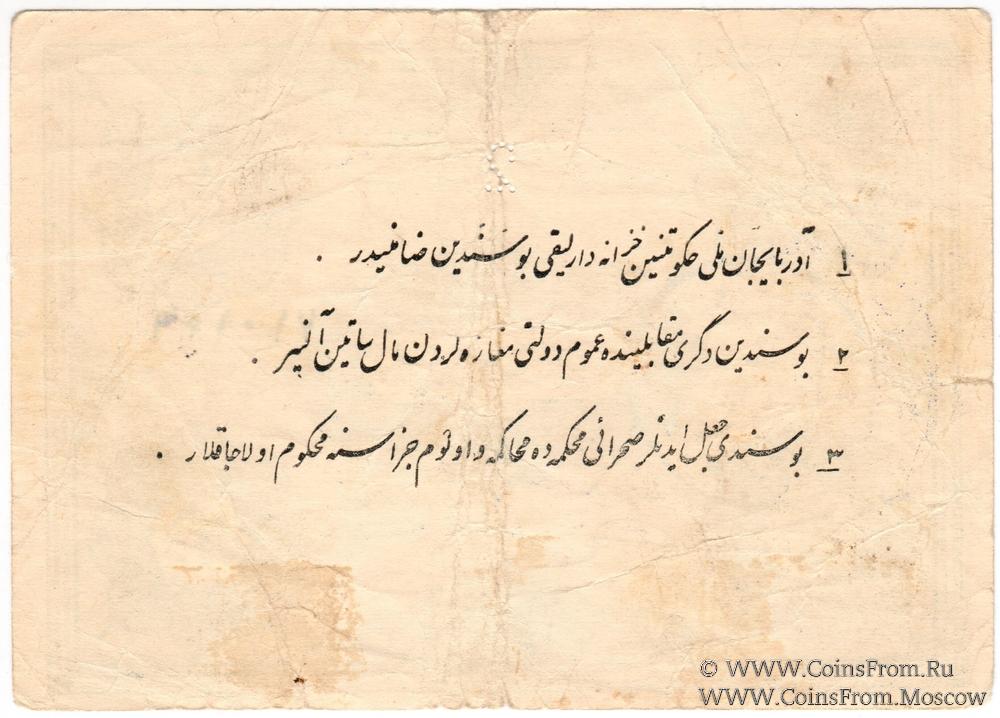 ۱ آذربایجان ملی حکومتنین خزانه دارلیقی بو سندین ضامنیدر .
۲ بو سندین دگری مقابلینده عموم دولتی مغازه لردن مال ساتین آلنیر .
۳ بو سندی جعل ایدنلر صحرائی محکمه ده محاکمه و اولوم جزاسنه محکوم اولاجاقلار .
© WWW.CoinsFrom.Ru
WWW.CoinsFrom.Moscow